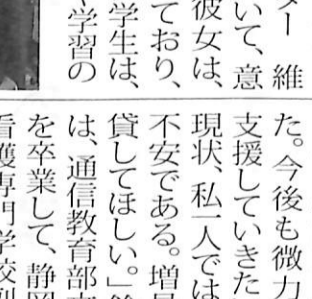 ター 維
いて、意
彼女は、
ており、
学生は、
学習の
た。今後も微力
支援していきた
現状、私一人では
不安である。増
貸してほしい。」
は、通信教育部
を卒業して、静岡
看護専門学校